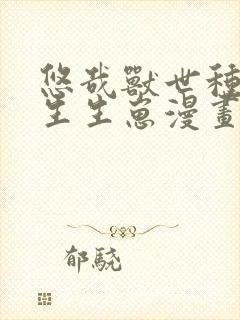 悠哉獸世種
生生崽漫畫
郁驍